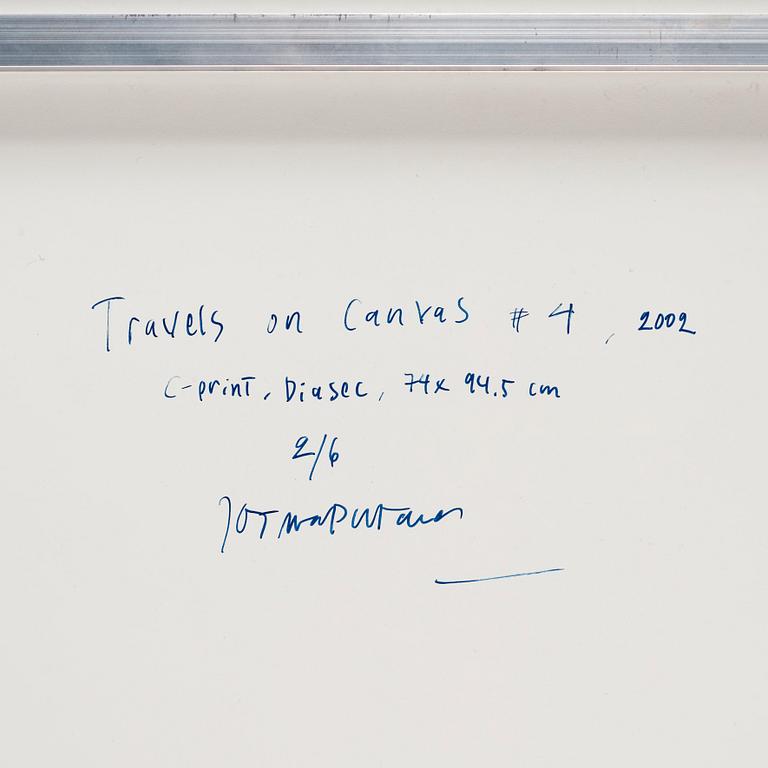 Travels on Canvas #4, 2002
C-print, Diasec, 74x 94.5 cm
2/6